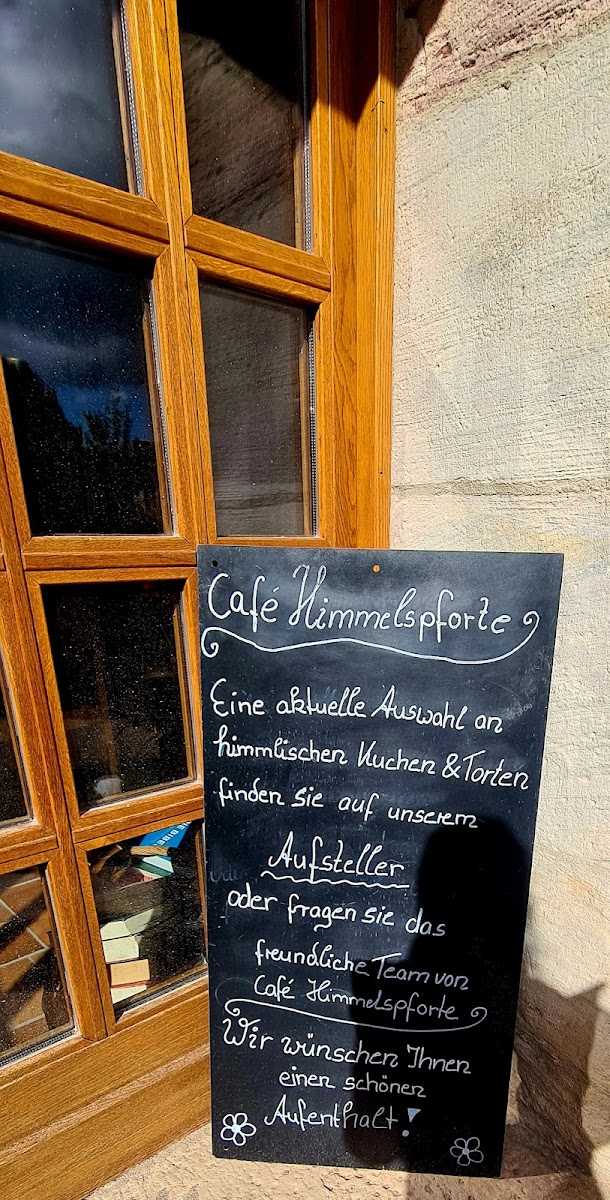 Café Himmelspforte
Eine aktuelle Auswahl an
himmlischen Kuchen & Torten
finden sie auf unserem
Aufsteller
oder fragen sie das
freundliche Team von
Café Himmelspforte
Wir wünschen Ihnen
einen schönen
Aufenthalt!